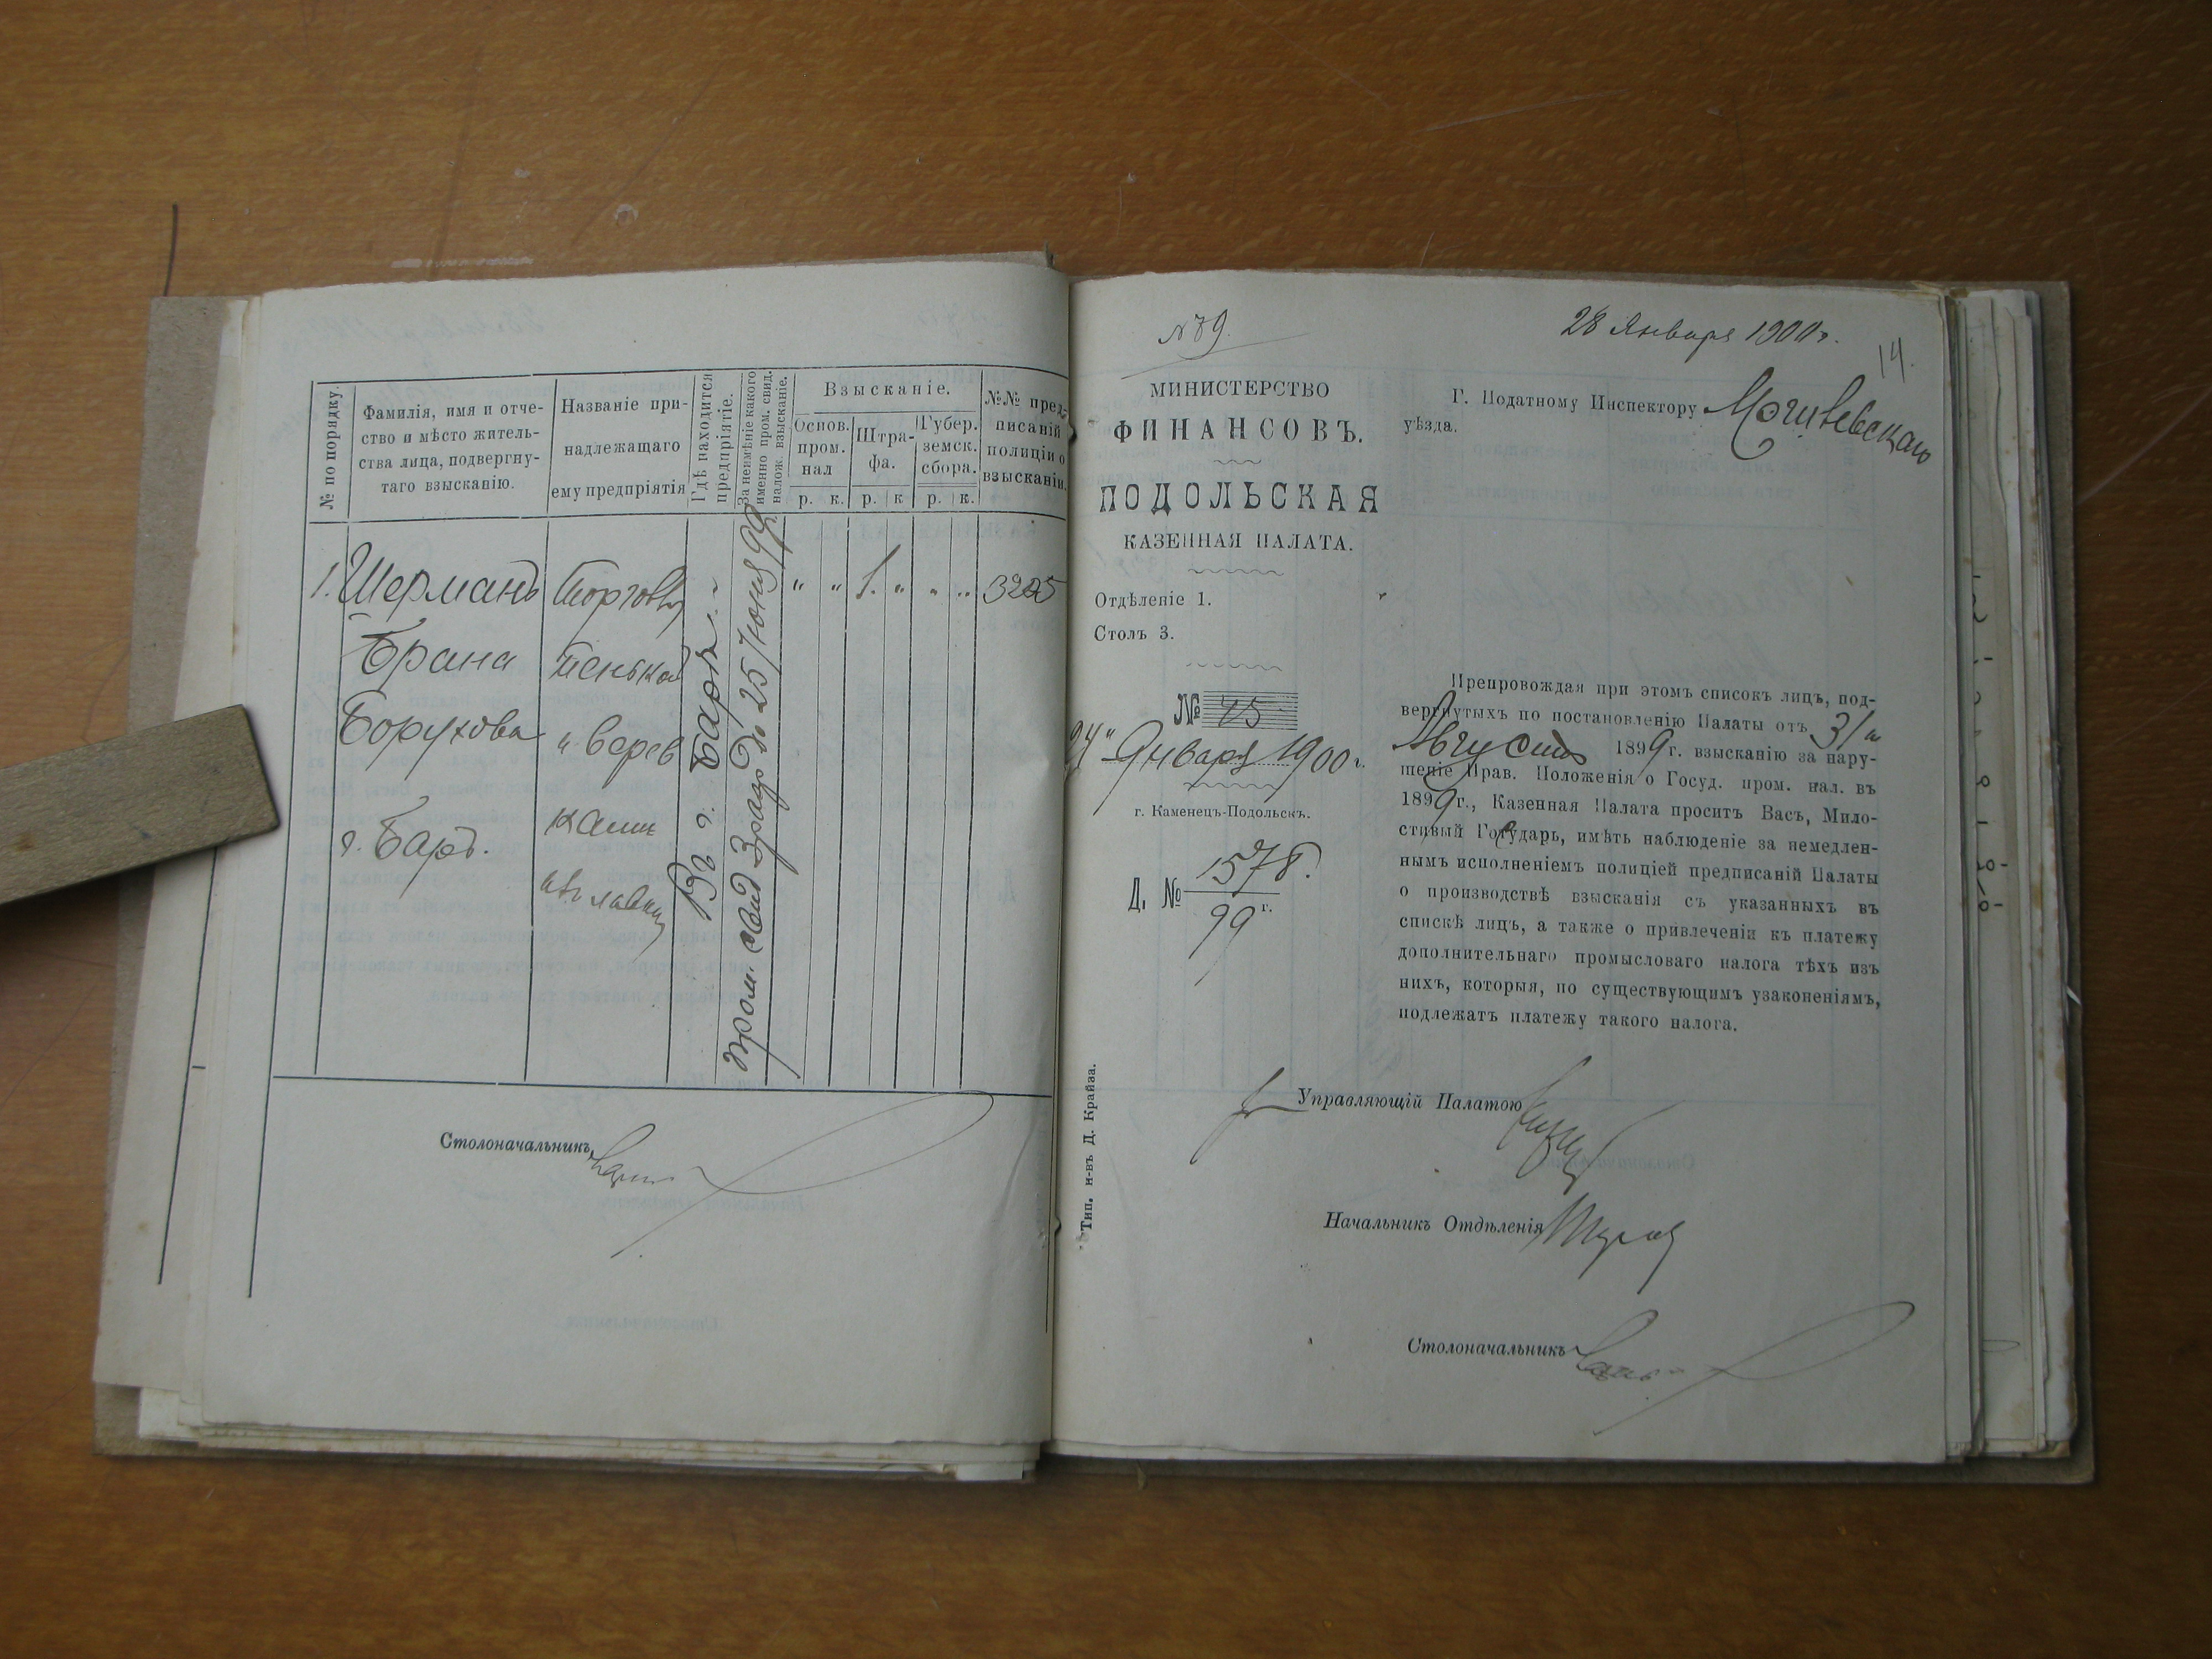 № по порядку.
Фамилія, имя и отче-
ство и мѣсто житель-
ства лица, подвергну-
таго взысканію.
Названіе при-
надлежащаго
ему предпріятія
Гдѣ находится
предпріятіе.
За неимѣніе какого
именно пром. свид.
налож. взысканіе.
Взысканіе.
Основ.
пром.
нал
Штра-
фа.
Губер.
земск.
сбора.
р. к. р. к р. к.
№№ пред-
писаній
полиціи о
взысканіи.
1. Шерманъ
Брана
Борухова
г. Баръ.
Торговля
пенькой
и верев
ками
изъ лавки
Въ г. Барѣ
пром. свид 3 разр до 25 Іюня 99 г.
" " 1. " " " 3205
Столоначальникъ
№ 89.
28 Января 1900 г.
14.
МИНИСТЕРСТВО
ФИНАНСОВЪ.
ПОДОЛЬСКАЯ
КАЗЕННАЯ ПАЛАТА.
Отдѣленіе 1.
Столъ 3.
№ 45
24" Января 1900 г.
г. Каменецъ-Подольскъ.
Д. № 1578.
99 г.
Тип. н-въ Д. Крайза.
Г. Податному Инспектору Могилевскаго
уѣзда.
Препровождая при этомъ списокъ лицъ, под-
вергнутыхъ по постановленію Палаты отъ 31
Августа 1899 г. взысканію за нару-
шеніе Прав. Положенія о Госуд. пром. нал. въ
1899 г., Казенная Палата проситъ Васъ, Мило-
стивый Государь, имѣть наблюденіе за немедлен-
нымъ исполненіемъ полиціей предписаній Палаты
о производствѣ взысканія съ указанныхъ въ
спискѣ лицъ, а также о привлеченіи къ платежу
дополнительнаго промысловаго налога тѣхъ изъ
нихъ, которыя, по существующимъ узаконеніямъ,
подлежатъ платежу такого налога.
Управляющій Палатою
Начальникъ Отдѣленія
Столоначальникъ